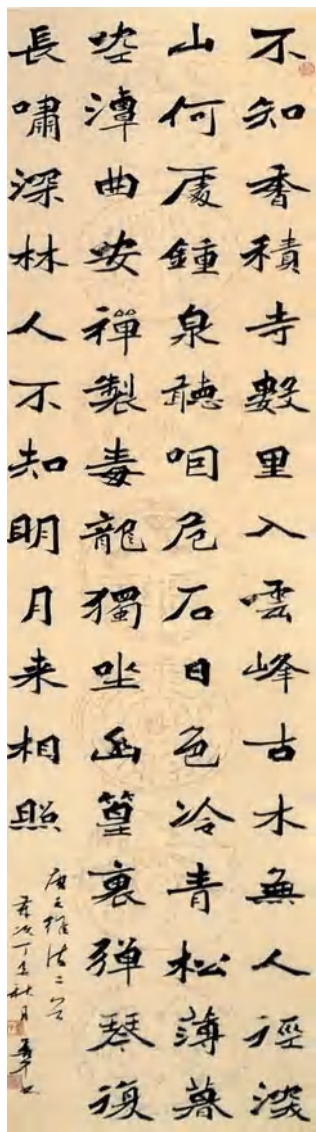 不知香積寺數里入雲峰古木無人徑深
山何處鍾泉聽咽危石日色冷青松薄暮
空潭曲安禪製毒龍獨坐幽篁裏弹琴復
長嘯深林人不知明月来相照
唐王維詩二首
歲次丁亥秋月